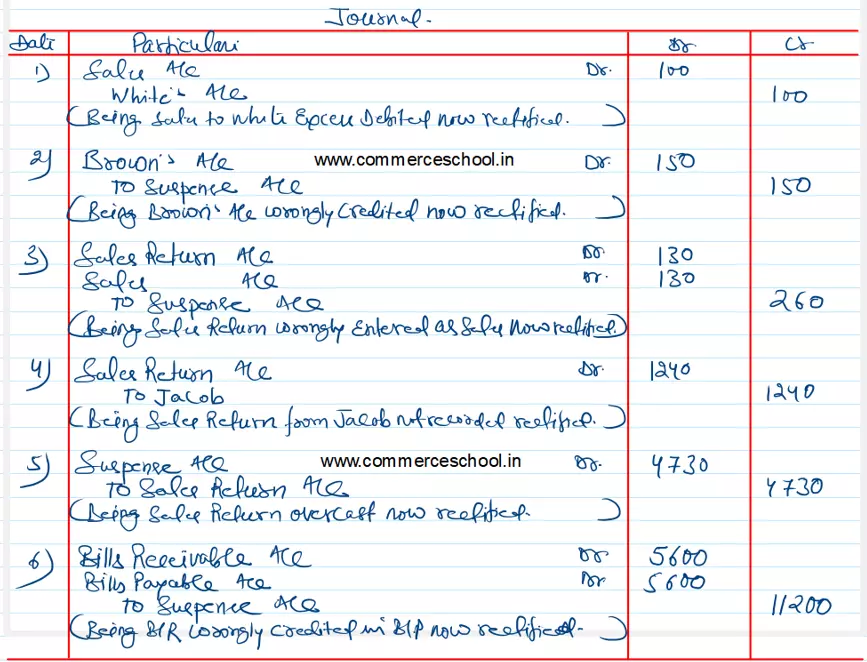 Journal.
Date Particulars Dr Cr
1) Sales A/c Dr. 100
White's A/c 100
(Being Sales to White Excess Debited now rectified.)
2) Brown's A/c www.commerceschool.in Dr. 150
To Suspence A/c 150
(Being Brown's A/c wrongly Credited now rectified.)
3) Sales Return A/c Dr. 130
Sales A/c Dr. 130
To Suspense A/c 260
(Being Sales Return wrongly Entered as Sales Now rectified.)
4) Sales Return A/c Dr. 1240
To Jacob 1240
(Being Sales Return from Jacob not recorded rectified.)
5) Suspense A/c www.commerceschool.in Dr. 4730
To Sales Return A/c 4730
(Being Sales Return overcast now rectified.)
6) Bills Receivable A/c Dr 5600
Bills Payable A/c Dr 5600
To Suspence A/c 11200
(Being B/R wrongly credited in B/P now rectified.)